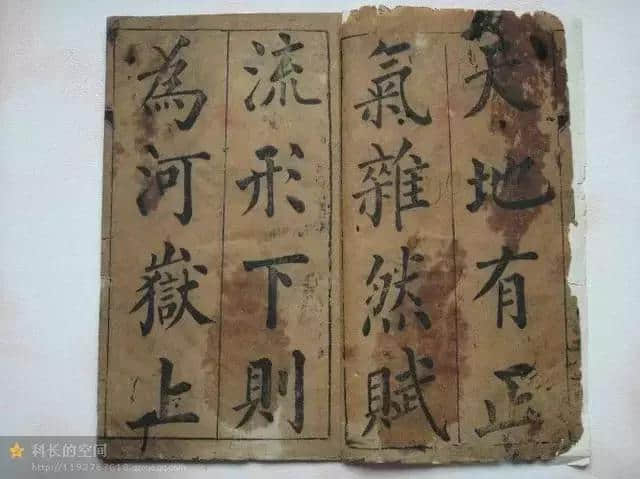 天地有正
氣雜然賦
流形下則
為河嶽上
科长的空间